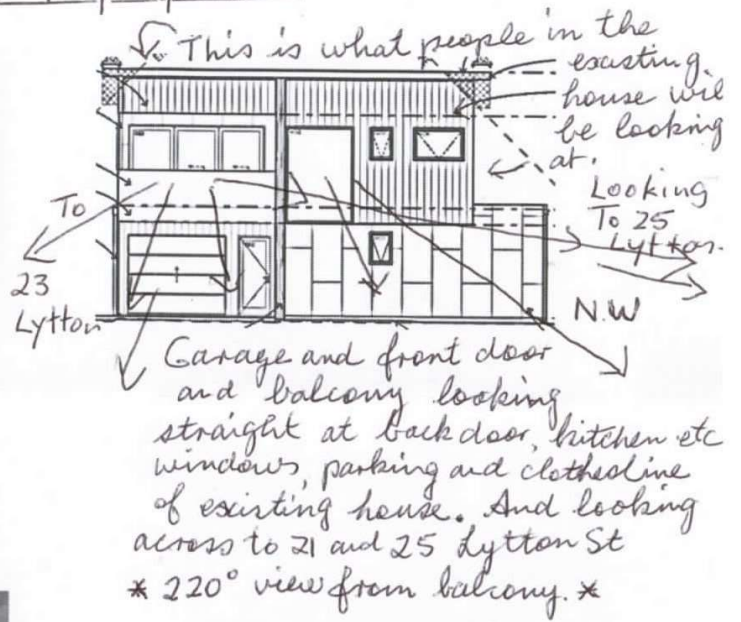 This is what people in the
existing
house wil
be looking
at.
Looking
To 25
Lytton.
To
23
Lytton
N.W
Garage and front door
and balcony looking
straight at back door, kitchen etc
windows, parking and clothesline
of existing house. And looking
across to 21 and 25 Lytton St
* 220° view from balcony. *